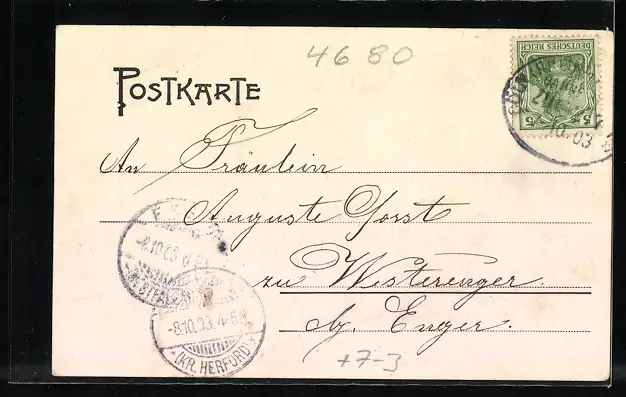 4680
POSTKARTE
DEUTSCHES REICH
5 5
10.03
An Fräulein
Auguste Jorst
zu Westerenger
b/ Enger.
-8.10.03
WESTFALEN
-8.10.03.4-5N
(KR. HERFORD)
+7-3